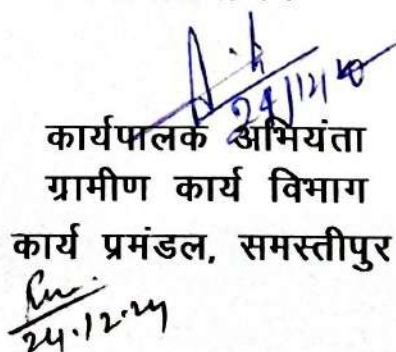 24/12/20
कार्यपालक अभियंता
ग्रामीण कार्य विभाग
कार्य प्रमंडल, समस्तीपुर
24.12.24